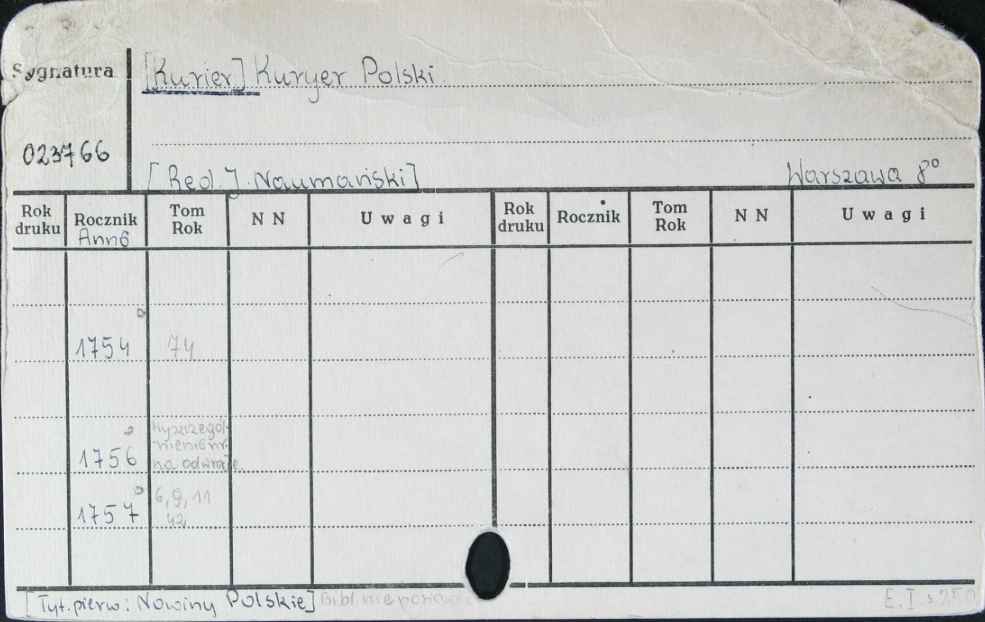 Sygnatura
[Kurier] Kuryer Polski
023766
[Red. J. Naumański] Warszawa 8°
Rok druku Rocznik Tom Rok N N Uwagi Rok druku Rocznik Tom Rok N N Uwagi
Anno
1754 74
wyszczegól-
nienie nr
1756 na odwrocie
6, 9, 11
1757 42
[Tyt. pierw: Nowiny Polskie] Bibl. nie
E. I s 250